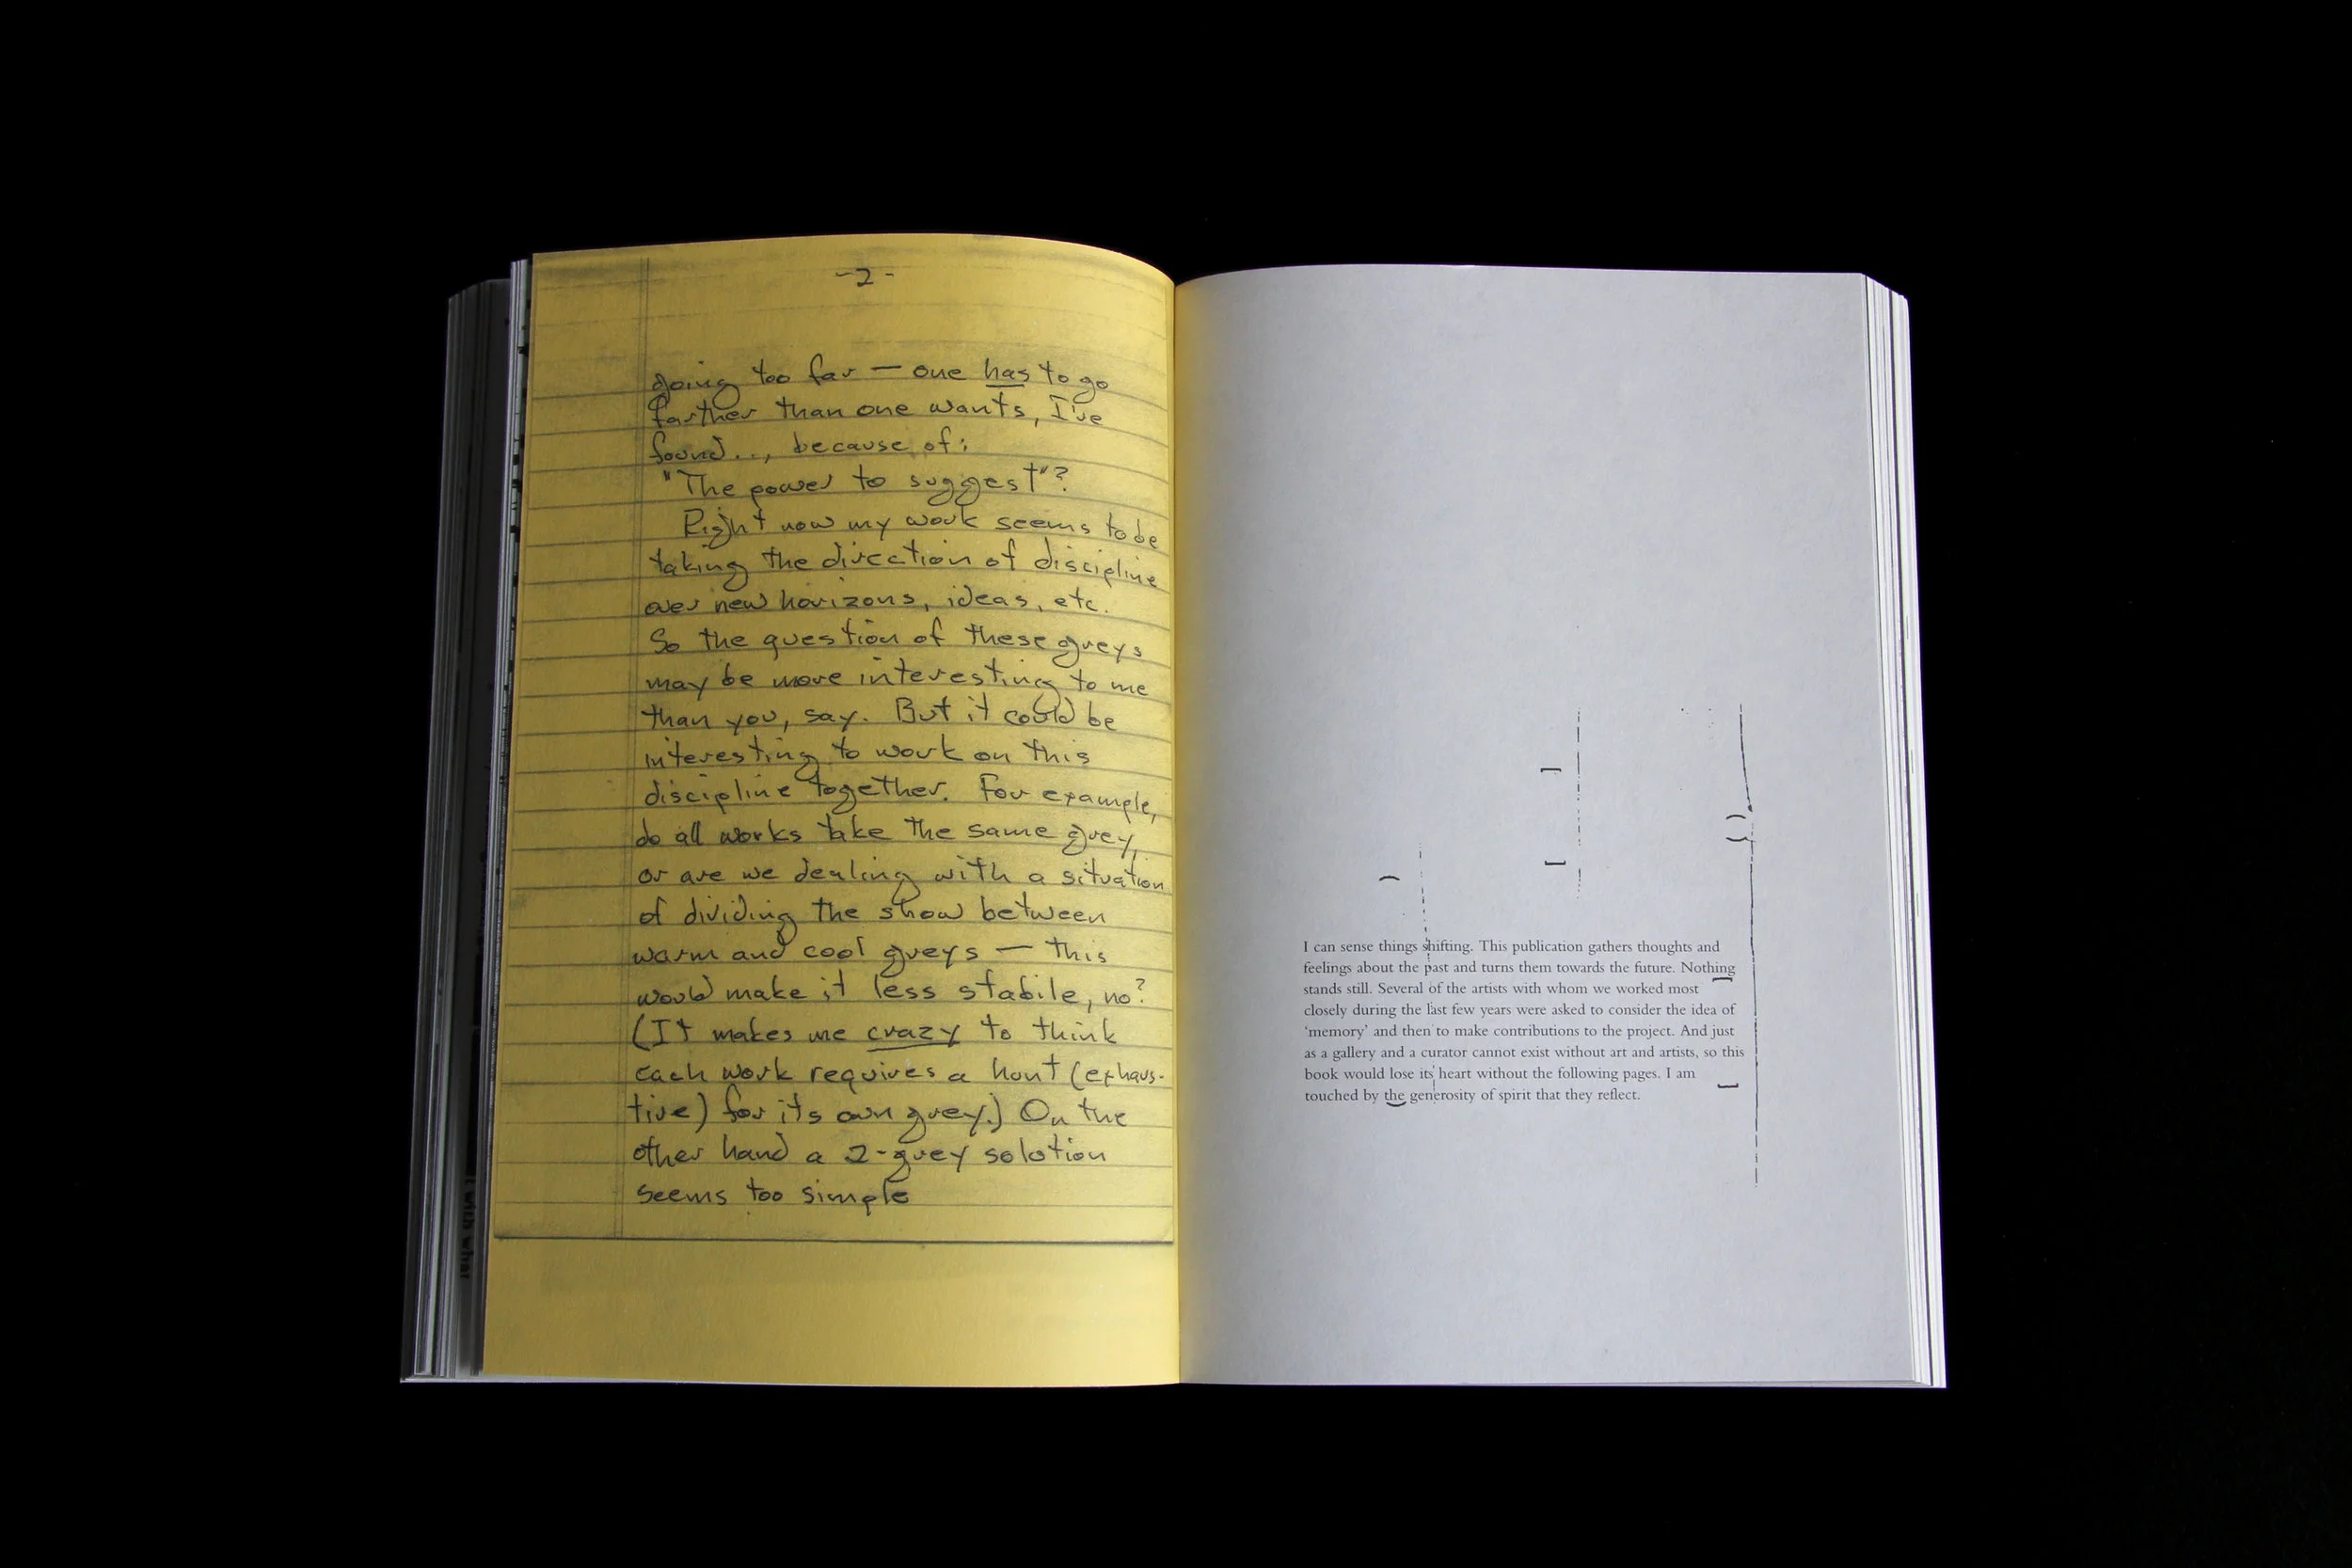 -2-
going too far — one has to go
farther than one wants, I've
found..., because of:
"The power to suggest"?
Right now my work seems to be
taking the direction of discipline
over new horizons, ideas, etc.
So the question of these greys
may be more interesting to me
than you, say. But it could be
interesting to work on this
discipline together. For example,
do all works take the same grey,
or are we dealing with a situation
of dividing the show between
warm and cool greys — this
would make it less stabile, no?
(It makes me crazy to think
each work requires a hunt (exhaus-
tive) for its own grey.) On the
other hand a 2-grey solution
seems too simple
I can sense things shifting. This publication gathers thoughts and
feelings about the past and turns them towards the future. Nothing
stands still. Several of the artists with whom we worked most
closely during the last few years were asked to consider the idea of
‘memory’ and then to make contributions to the project. And just
as a gallery and a curator cannot exist without art and artists, so this
book would lose its heart without the following pages. I am
touched by the generosity of spirit that they reflect.